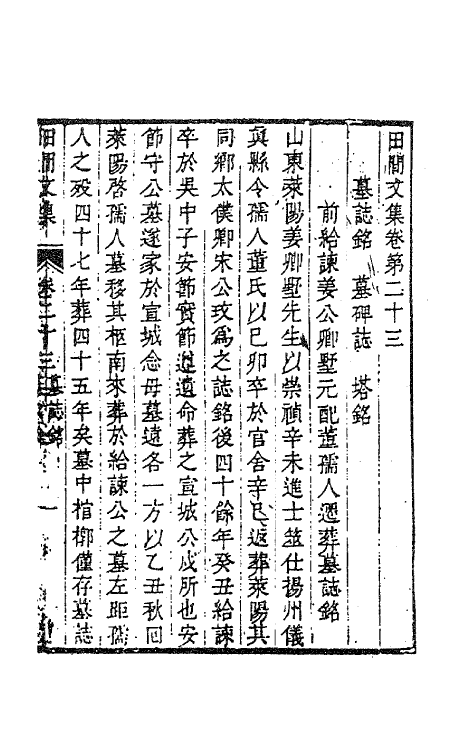 田間文集卷第二十三
墓誌銘　墓碑誌　塔銘
前給諫姜公卿墅元配董孺人遷葬墓誌銘
山東萊陽姜卿墅先生以崇禎辛未進士筮仕揚州儀
眞縣令孺人董氏以己卯卒於官舍辛巳返葬萊陽其
同鄉太僕卿宋公玫爲之誌銘後四十餘年癸丑給諫
卒於吳中子安節實節遵遺命葬之宣城公戍所也安
節守公墓遂家於宣城念母墓遠各一方以乙丑秋囘
萊陽啓孺人墓移其柩南來葬於給諫公之墓左距孺
人之歿四十七年葬四十五年矣墓中棺槨僅存墓誌
田間文集　卷二十三　墓誌銘　一